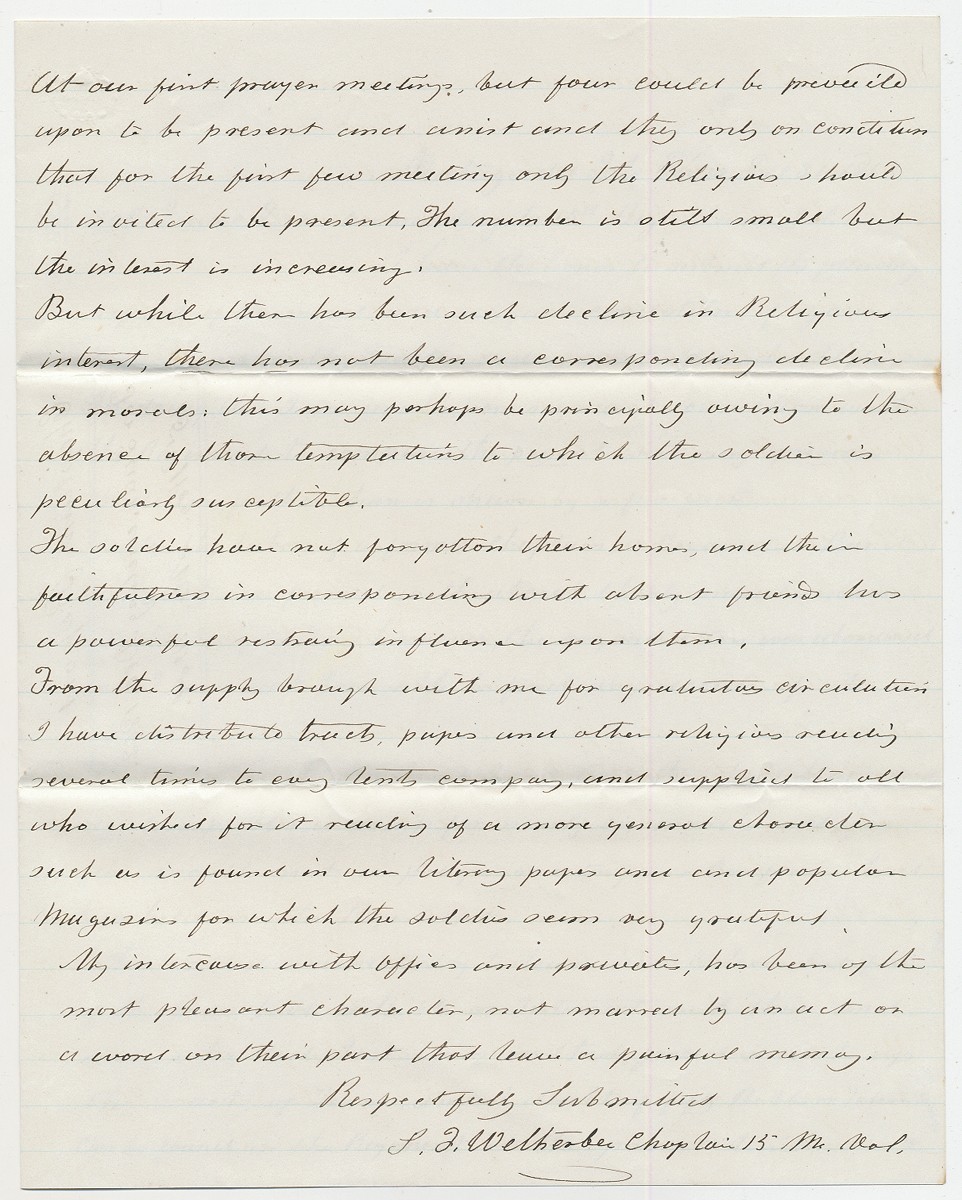 At our first prayer meetings, but four could be prevailed
upon to be present and assist and they only on condition
that for the first few meeting only the Religious should
be invited to be present. The number is still small but
the interest is increasing.
But while there has been such decline in Religious
interest, there has not been a corresponding decline
in morals: this may perhaps be principally owing to the
absence of those temptations to which the soldier is
peculiarly susceptible.
The soldiers have not forgotton their homes, and their
faithfulness in corresponding with absent friends has
a powerful restraing influence upon them.
From the supply brough with me for gratuitous circulation
I have distributed tracts, papers and other religious reading
several times to every tents company, and supplied to all
who wished for it reading of a more general character
such as is found in our literary papers and and popular
Magazins for which the soldiers seem very grateful.
My intercourse with officers and privates, has been of the
most pleasant character, not marred by an act or
a word on their part that leave a painful memory.
Respectfully Submitted
S. F. Wetherbee Chaplain 15 Me. Vol.